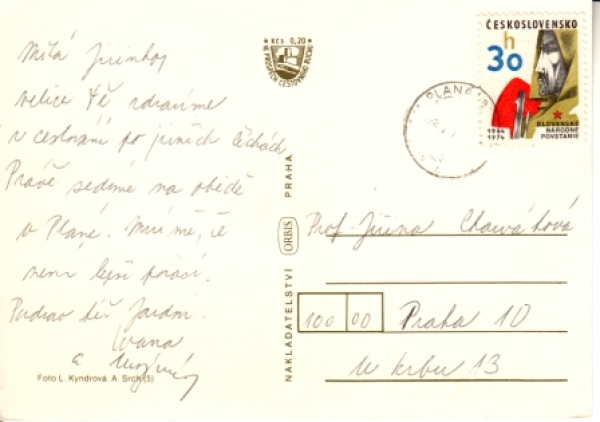 Milá Jiřinko,
velice Tě zdravíme
z cestování po jižních Čechách
Právě sedíme na obědě
v Plané. Mrzí mě, že
není lepší počasí.
Pozdrav též Jardovi.
Ivana
a
Foto L. Kyndrová, A. Srch (5)
Kčs 0,20
VE PROSPĚCH CESTOVNÍHO RUCHU
NAKLADATELSTVÍ ORBIS PRAHA
PLANÁ
ČESKOSLOVENSKO
30 h
1944
1974
SLOVENSKÉ
NÁRODNÉ
POVSTANIE
Prof. Jiřina
100 00 Praha 10
U krbu 13